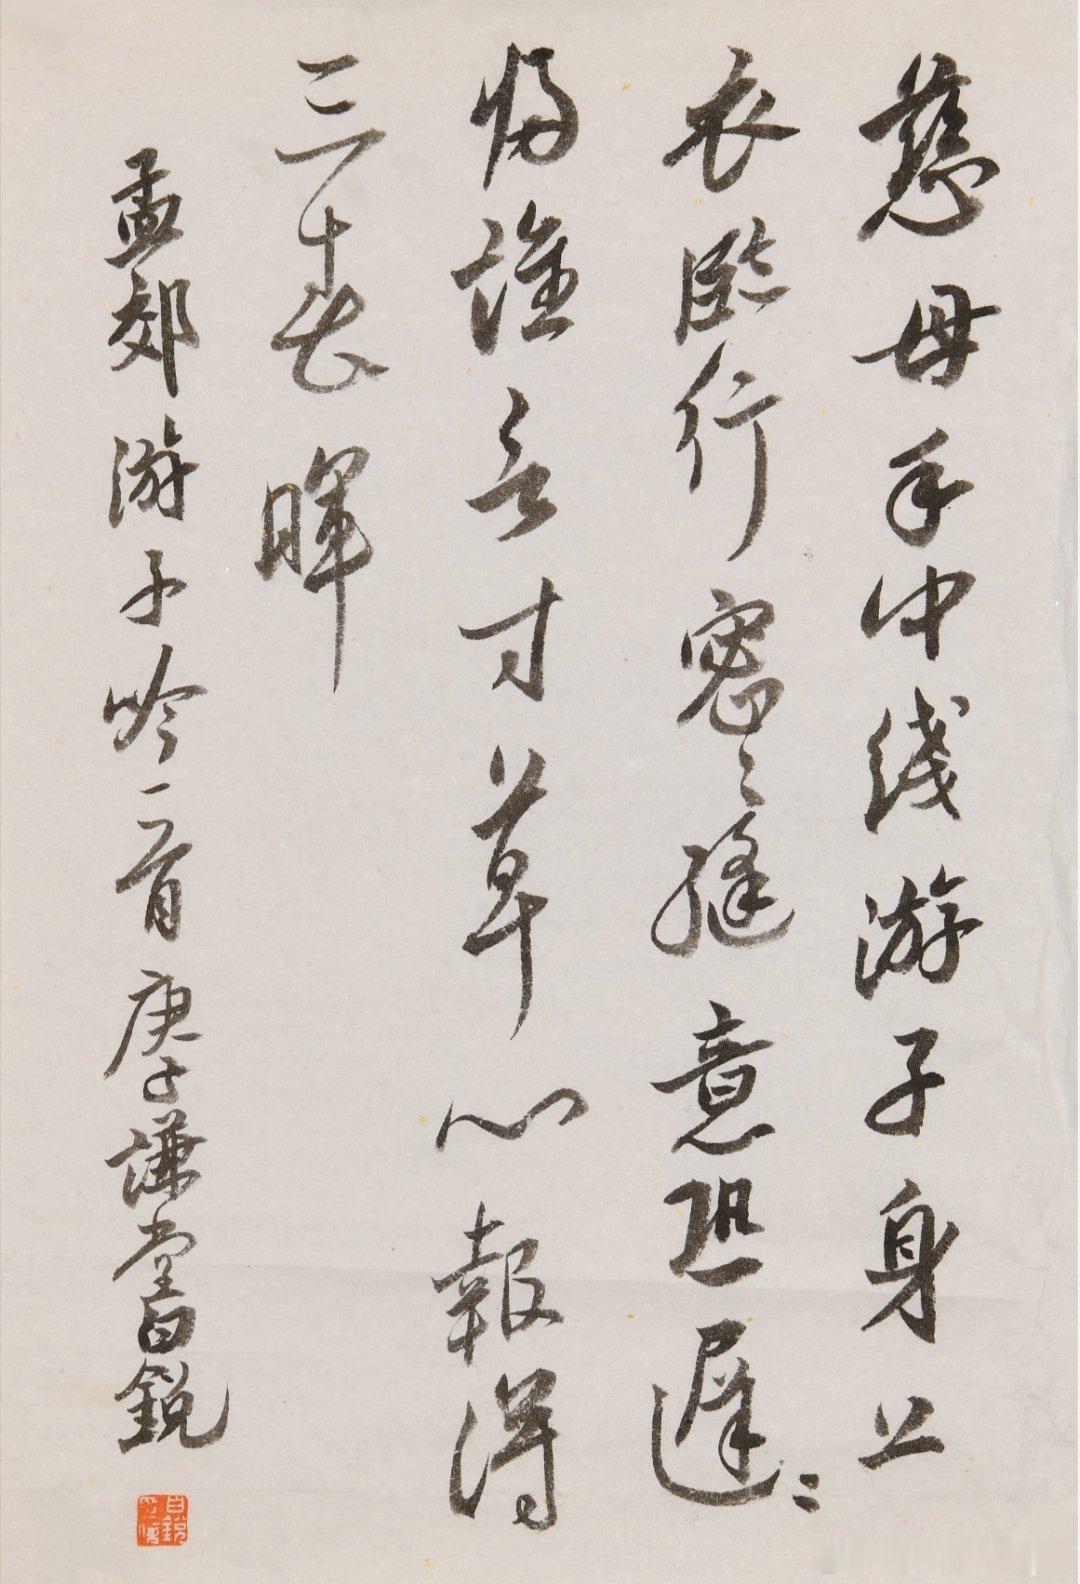 慈母手中线游子身上
衣临行密〻缝意恐遲〻
归谁言寸草心報得
三春暉
孟郊游子吟一首庚子謙堂白銳
白銳